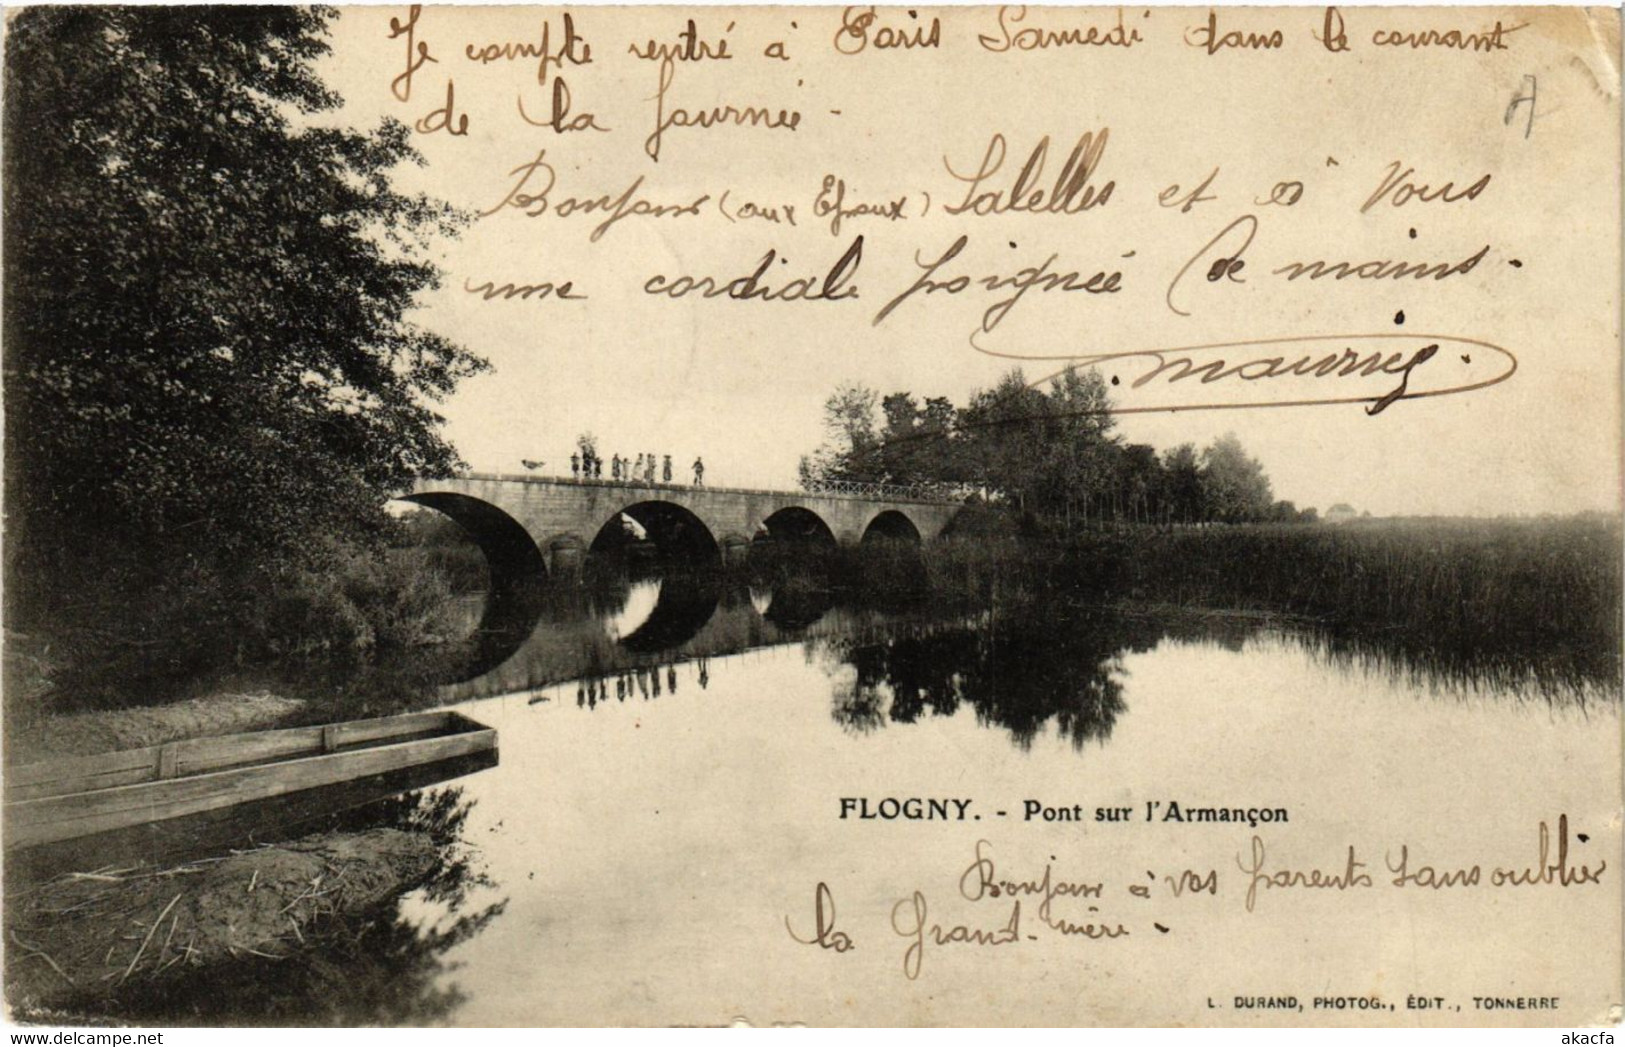 Je compte rentré à Paris Samedi dans le courant
de la journée -
Bonjour (aux Epoux) Salelles et à Vous
une cordiale poignée de mains.
FLOGNY. - Pont sur l'Armançon
Bonjour à vos parents sans oublier
la Grand-mère -
L. DURAND, PHOTOG., ÉDIT., TONNERRE
akacfa